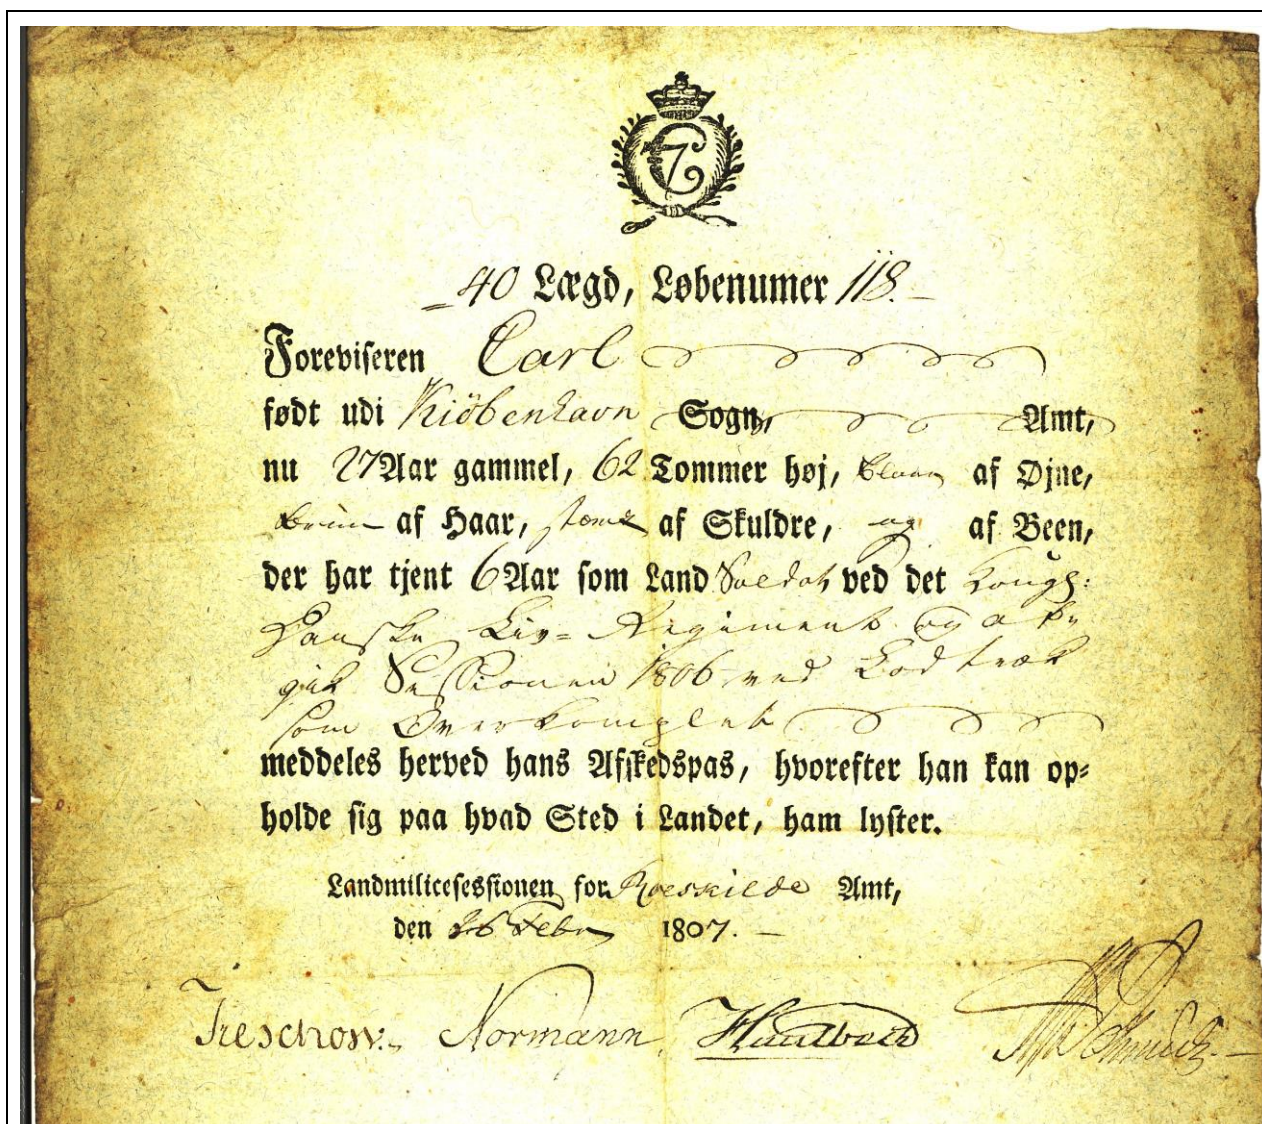 C7
40 Lægd, Løbenumer 118.
Foreviseren Carl
født udi Kiöbenhavn Sogn, Amt,
nu 27 Aar gammel, 62 Tommer høj, blaae af Øjne,
bruun af Haar, stærk af Skuldre, og af Been,
der har tjent 6 Aar som Land Soldat ved det Kongl:
Danske Liv- Regiment og afbe
gik Sessionen 1806 ved Lodtræk
som Overkomplet
meddeles herved hans Afskedspas, hvorefter han kan op-
holde sig paa hvad Sted i Landet, ham lyster.
Landmilicesessionen for Roeskilde Amt,
den 26 Febr 1807.
Treschow. Normann